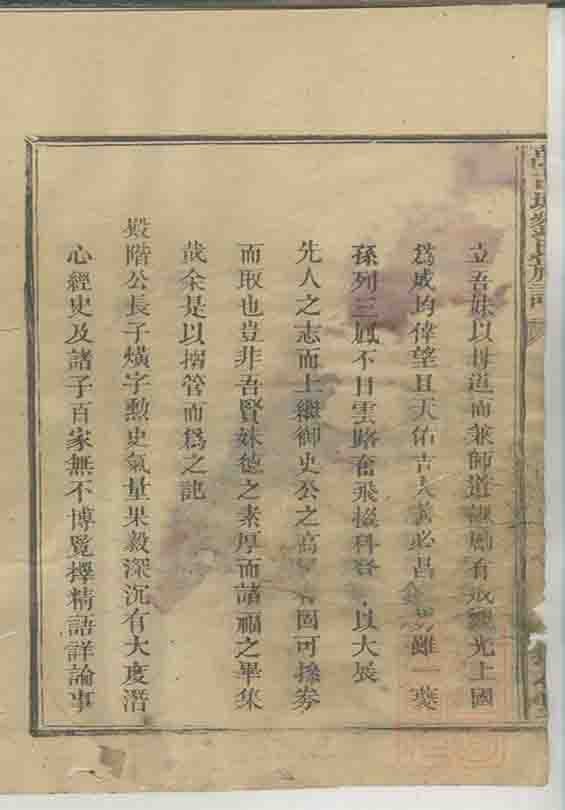 立吾妹以母道而兼師道禮勵有成觀光上國
爲威均偉望且天佑吉人善必昌雖一葉
孫列三鳳不日雲路奮飛掇科登以大展
先人之志而上繼御史公之高固可操券
而取也豈非吾賢妹德之素厚而諸福之畢集
哉余是以搦管而爲之記
殿階公長子爌字勲史氣量果毅深沉有大度潛
心經史及諸子百家無不博覽擇精語詳論事